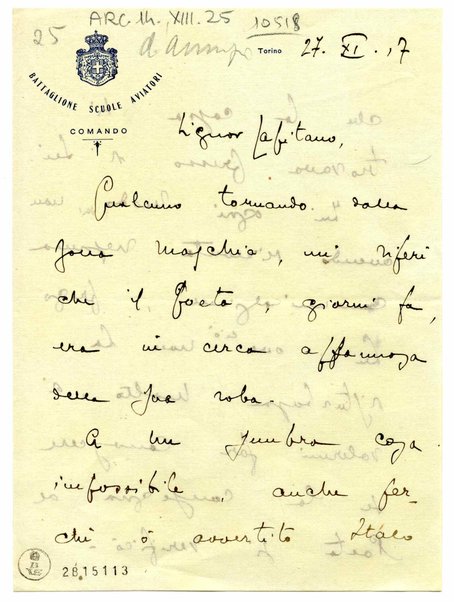 ARC. 14. XIII. 25
10518
25
Torino 27. XI. 17
BATTAGLIONE SCUOLE AVIATORI
COMANDO
Signor Capitano,
Qualcuno tornando dalla
zona maschia, mi riferì
che il Poeta, giorni fa,
era in cerca affannosa
della sua roba.
A me sembra cosa
impossibile, anche per
chè ò avvertito Italo
2815113